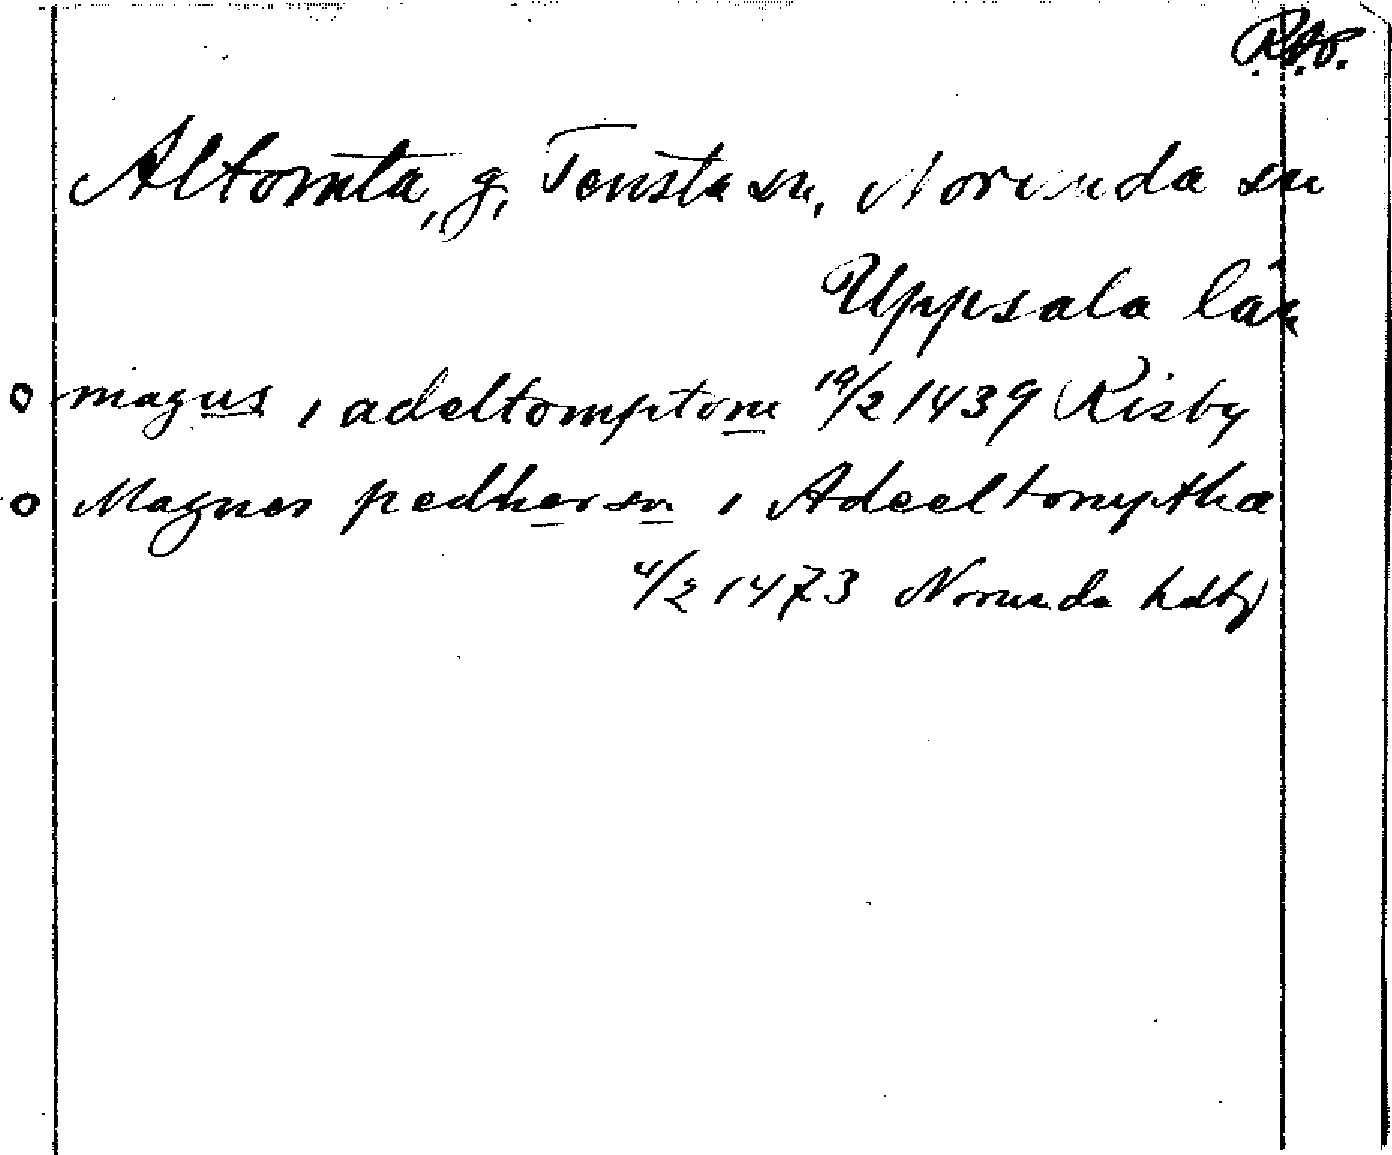 R.A.P.
Altomta, g, Tensta sn, Norunda sn
Uppsala län
magus i adeltomptom 19/2 1439 Risby
Magnes pedhersn i Adeeltomptha
4/2 1473 Norunda hdbg